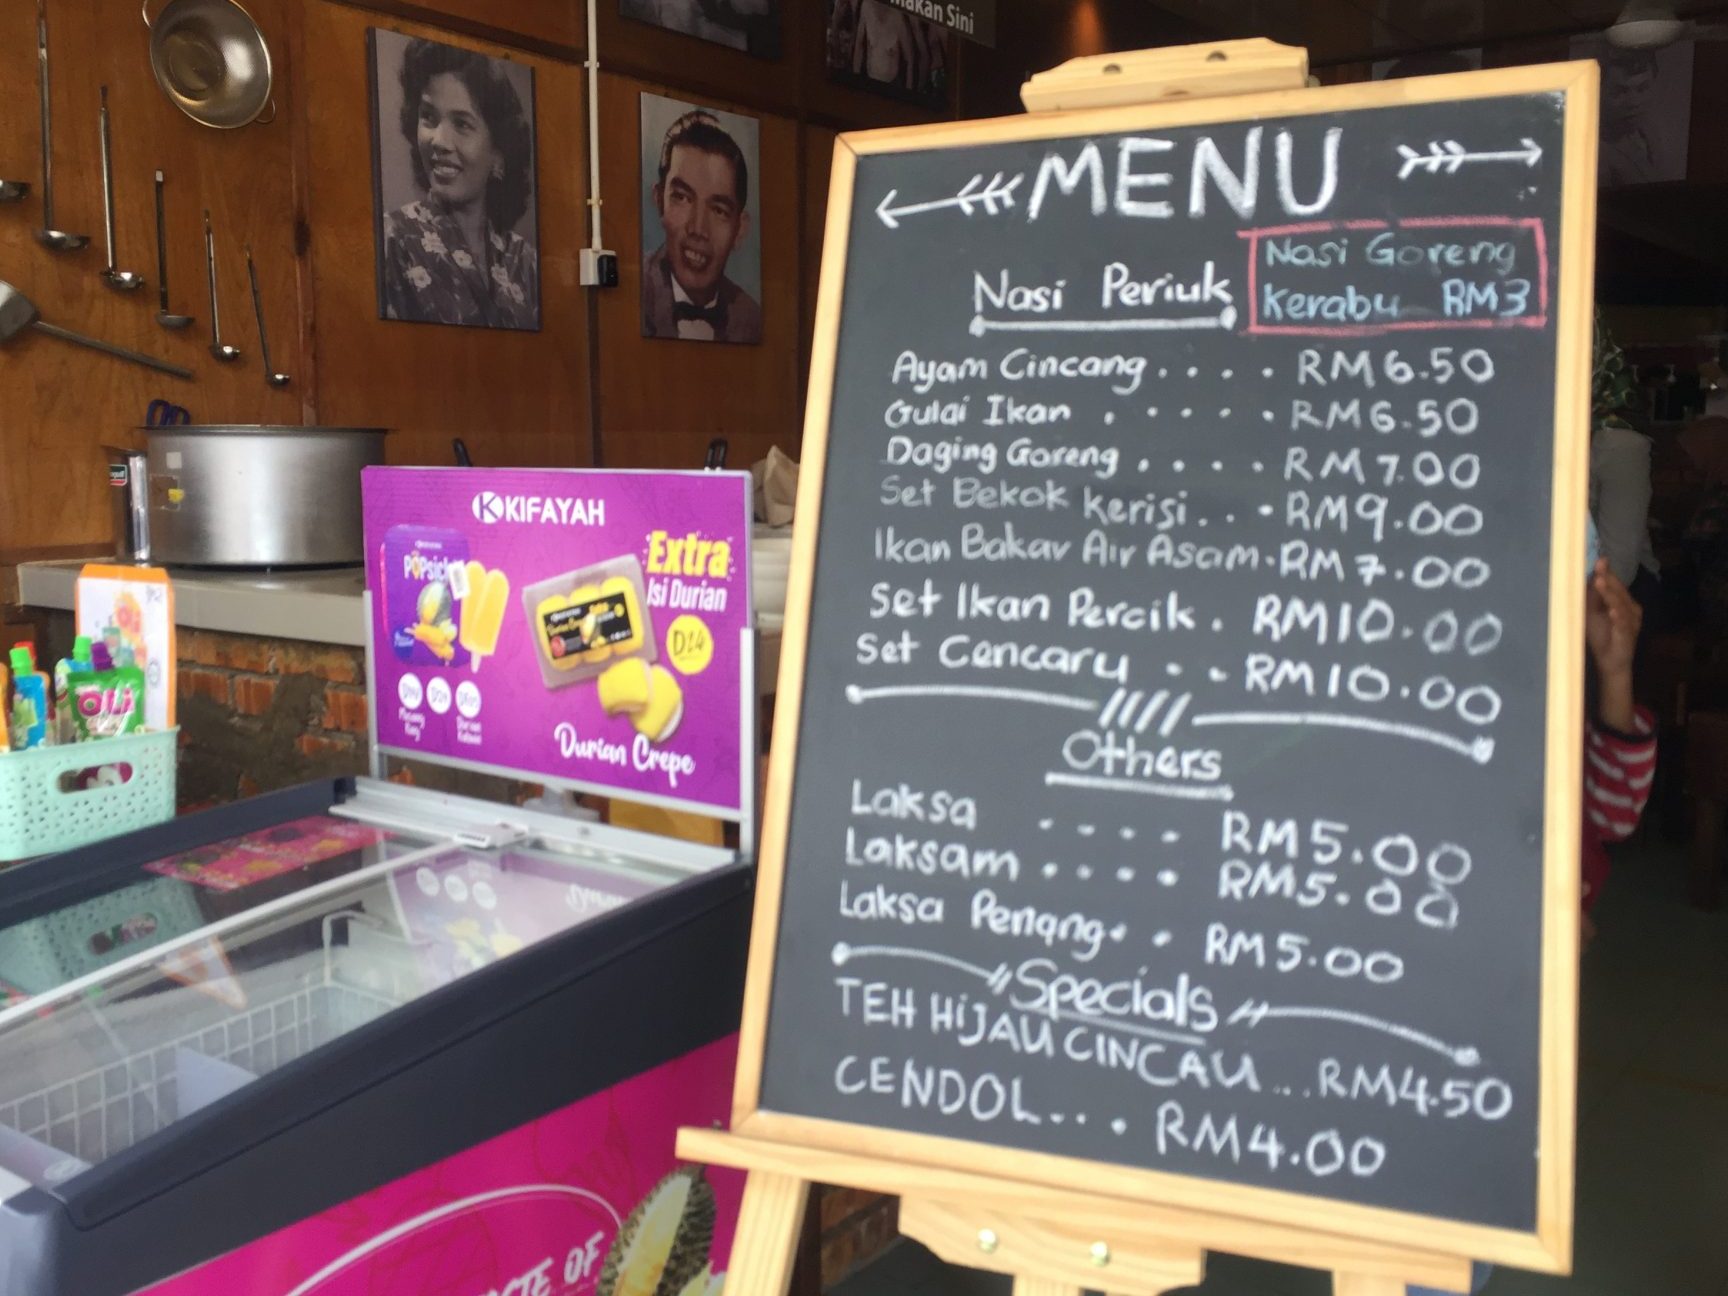 Makan Sini
MENU
Nasi Goreng
Kerabu RM3
Nasi Periuk
Ayam Cincang.... RM6.50
Gulai Ikan ..... RM6.50
Daging Goreng.... RM7.00
Set Bekok Kerisi... RM9.00
Ikan Bakar Air Asam. RM7.00
Set Ikan Percik. RM10.00
Set Cencaru .. RM10.00
Others
Laksa .... RM5.00
Laksam .... RM5.00
Laksa Penang.. RM5.00
Specials
TEH HIJAU CINCAU ... RM4.50
CENDOL... RM4.00
KIFAYAH
Extra
Isi Durian
D24
Durian Crepe
OF